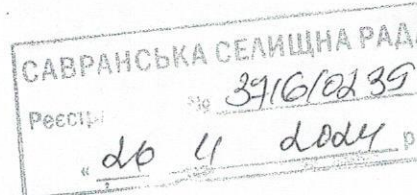 САВРАНСЬКА СЕЛИЩНА РАДА
Реєстр № 3716/0239
« 26 4 2024 р